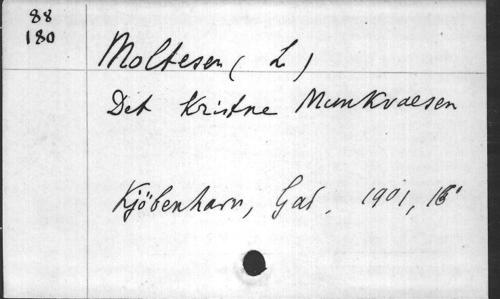 88
180
Moltesen ( L )
Det Kristne Munkvaesen
Kjöbenharn, Gad, 1901, 16°